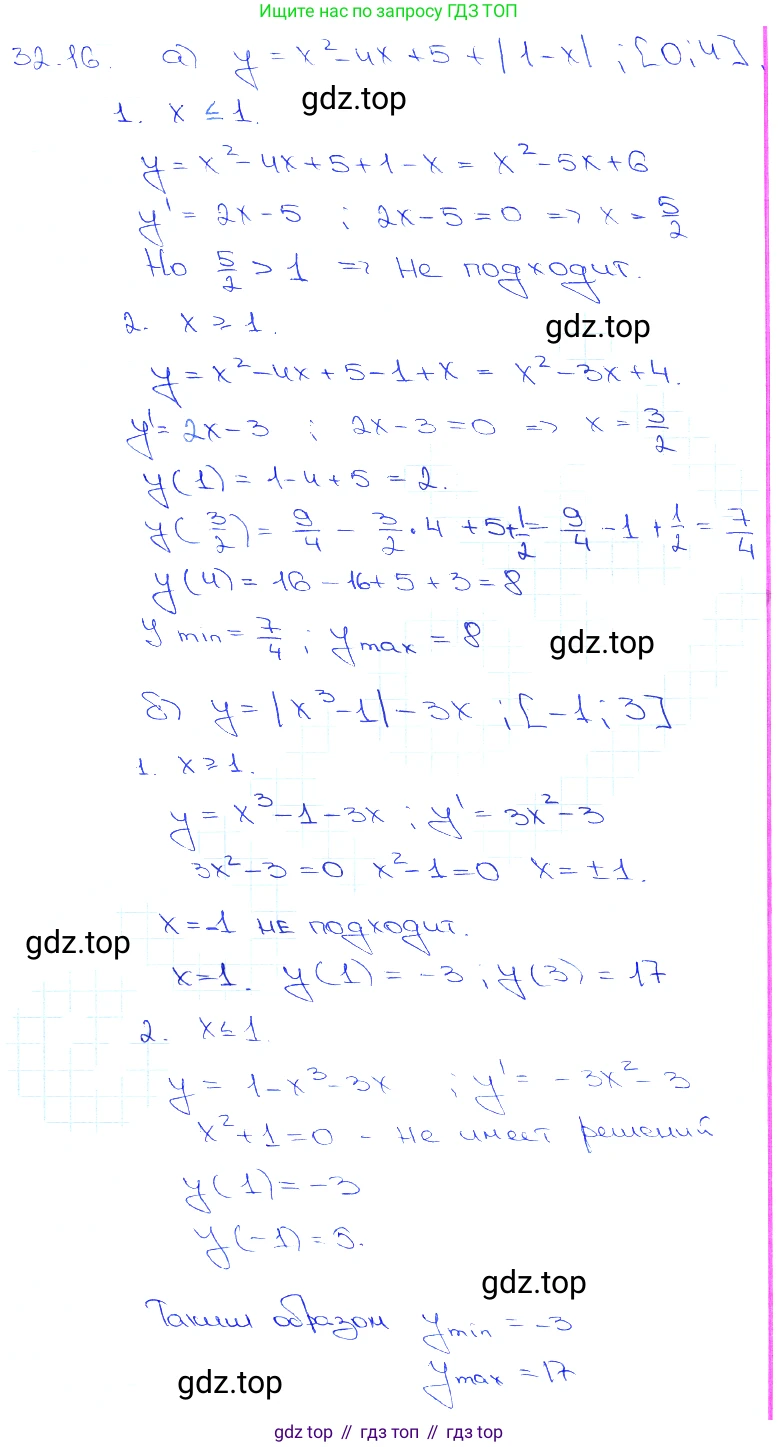 Ищите нас по запросу ГДЗ ТОП
32.16. а) y = x² - 4x + 5 + |1 - x| ; [0; 4].
gdz.top
1. x ≤ 1.
y = x² - 4x + 5 + 1 - x = x² - 5x + 6
y' = 2x - 5 ; 2x - 5 = 0 => x = 5/2
Но 5/2 > 1 => не подходит.
2. x ≥ 1.
gdz.top
y = x² - 4x + 5 - 1 + x = x² - 3x + 4.
y' = 2x - 3 ; 2x - 3 = 0 => x = 3/2
y(1) = 1 - 4 + 5 = 2.
y(3/2) = 9/4 - 3/2 · 4 + 5 + 1/2 = 9/4 - 1 + 1/2 = 7/4
y(4) = 16 - 16 + 5 + 3 = 8
y min = 7/4 ; y max = 8
gdz.top
б) y = |x³ - 1| - 3x ; [-1; 3]
1. x ≥ 1.
y = x³ - 1 - 3x ; y' = 3x² - 3
3x² - 3 = 0 x² - 1 = 0 x = ±1.
x = -1 не подходит.
gdz.top
x = 1. y(1) = -3 ; y(3) = 17
2. x ≤ 1.
y = 1 - x³ - 3x ; y' = -3x² - 3
x² + 1 = 0 - не имеет решений
y(1) = -3
y(-1) = 5.
gdz.top
Таким образом y min = -3
y max = 17
gdz.top
gdz top // гдз топ // gdz top